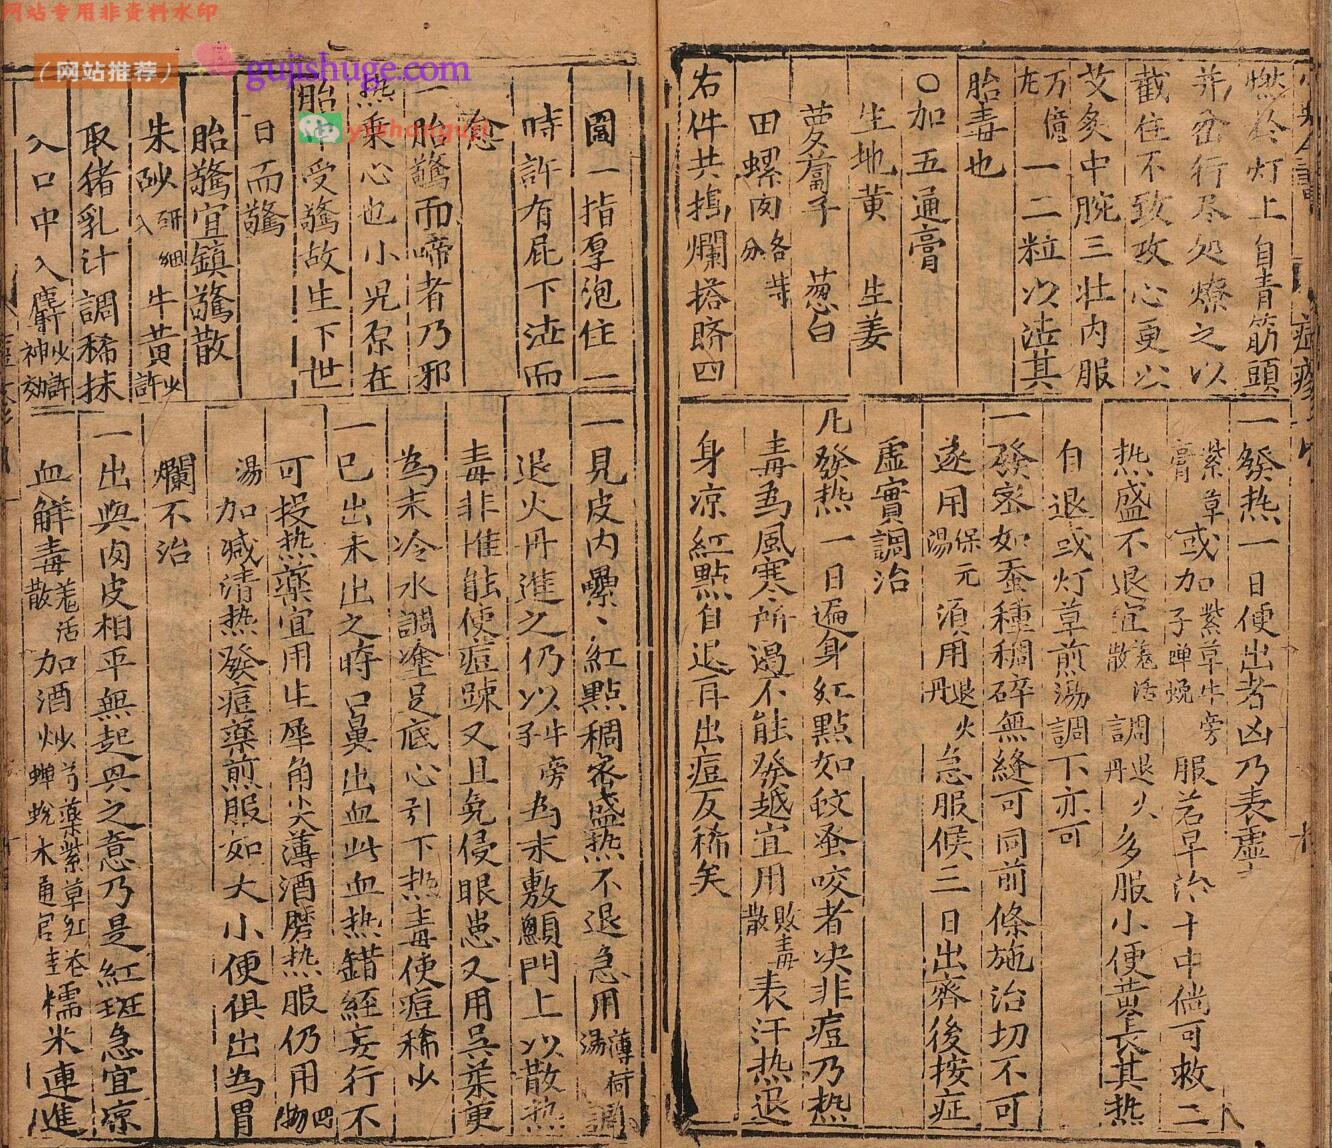 网站专用非资料水印
（网站推荐）
gujishuge.com
yishanguji
燃於灯上自青筋頭
并岔行尽处燎之以
截住不致攻心更以
艾灸中脘三壮内服
万億一二粒以泄其
胎毒也
〇加五通膏
生地黄 生姜
蔔子 葱白
田螺肉各等分
右件共搗爛搭臍四
圍一指厚泡住一
時許有屁下泄而
愈
一胎驚而啼者乃邪
热乗心也小児原在
胎受驚故生下世
日而驚
胎驚宜鎮驚散
朱砂研細入牛黄少許
取猪乳汁調稀抹
入口中入麝少許神効
一發热一日便出者凶乃表虚
紫草膏或加紫草牛旁子蝉蜕服若早治十中倘可救二
热盛不退宜羗活散調退火丹多服小便黄長其热
自退或灯草煎湯調下亦可
一發密如蚕種稠碎無縫可同前條施治切不可
遂用保元湯須用退火丹急服候三日出齊後按症
虚實調治
凡發热一日遍身紅點如蚊蚤咬者决非痘乃热
毒為風寒所遏不能發越宜用敗毒散表汗热退
身凉紅點自退再出痘反稀矣
一見皮内纍、紅點稠密盛热不退急用薄荷湯調
退火丹進之仍以牛旁子為末敷顖門上以散热
毒非惟能使痘踈又且免侵眼患又用吳茱更
為末冷水調塗足底心引下热毒使痘稀少
一已出未出之時口鼻出血此血热錯經妄行不
可投热藥宜用生犀角尖薄酒磨热服仍用四物
湯加减清热發痘藥煎服如大小便俱出為胃
爛不治
一出與肉皮相平無起與之意乃是紅斑急宜凉
血解毒羗活散加酒炒芍藥紫草紅花蝉蜕木通官桂糯米連進